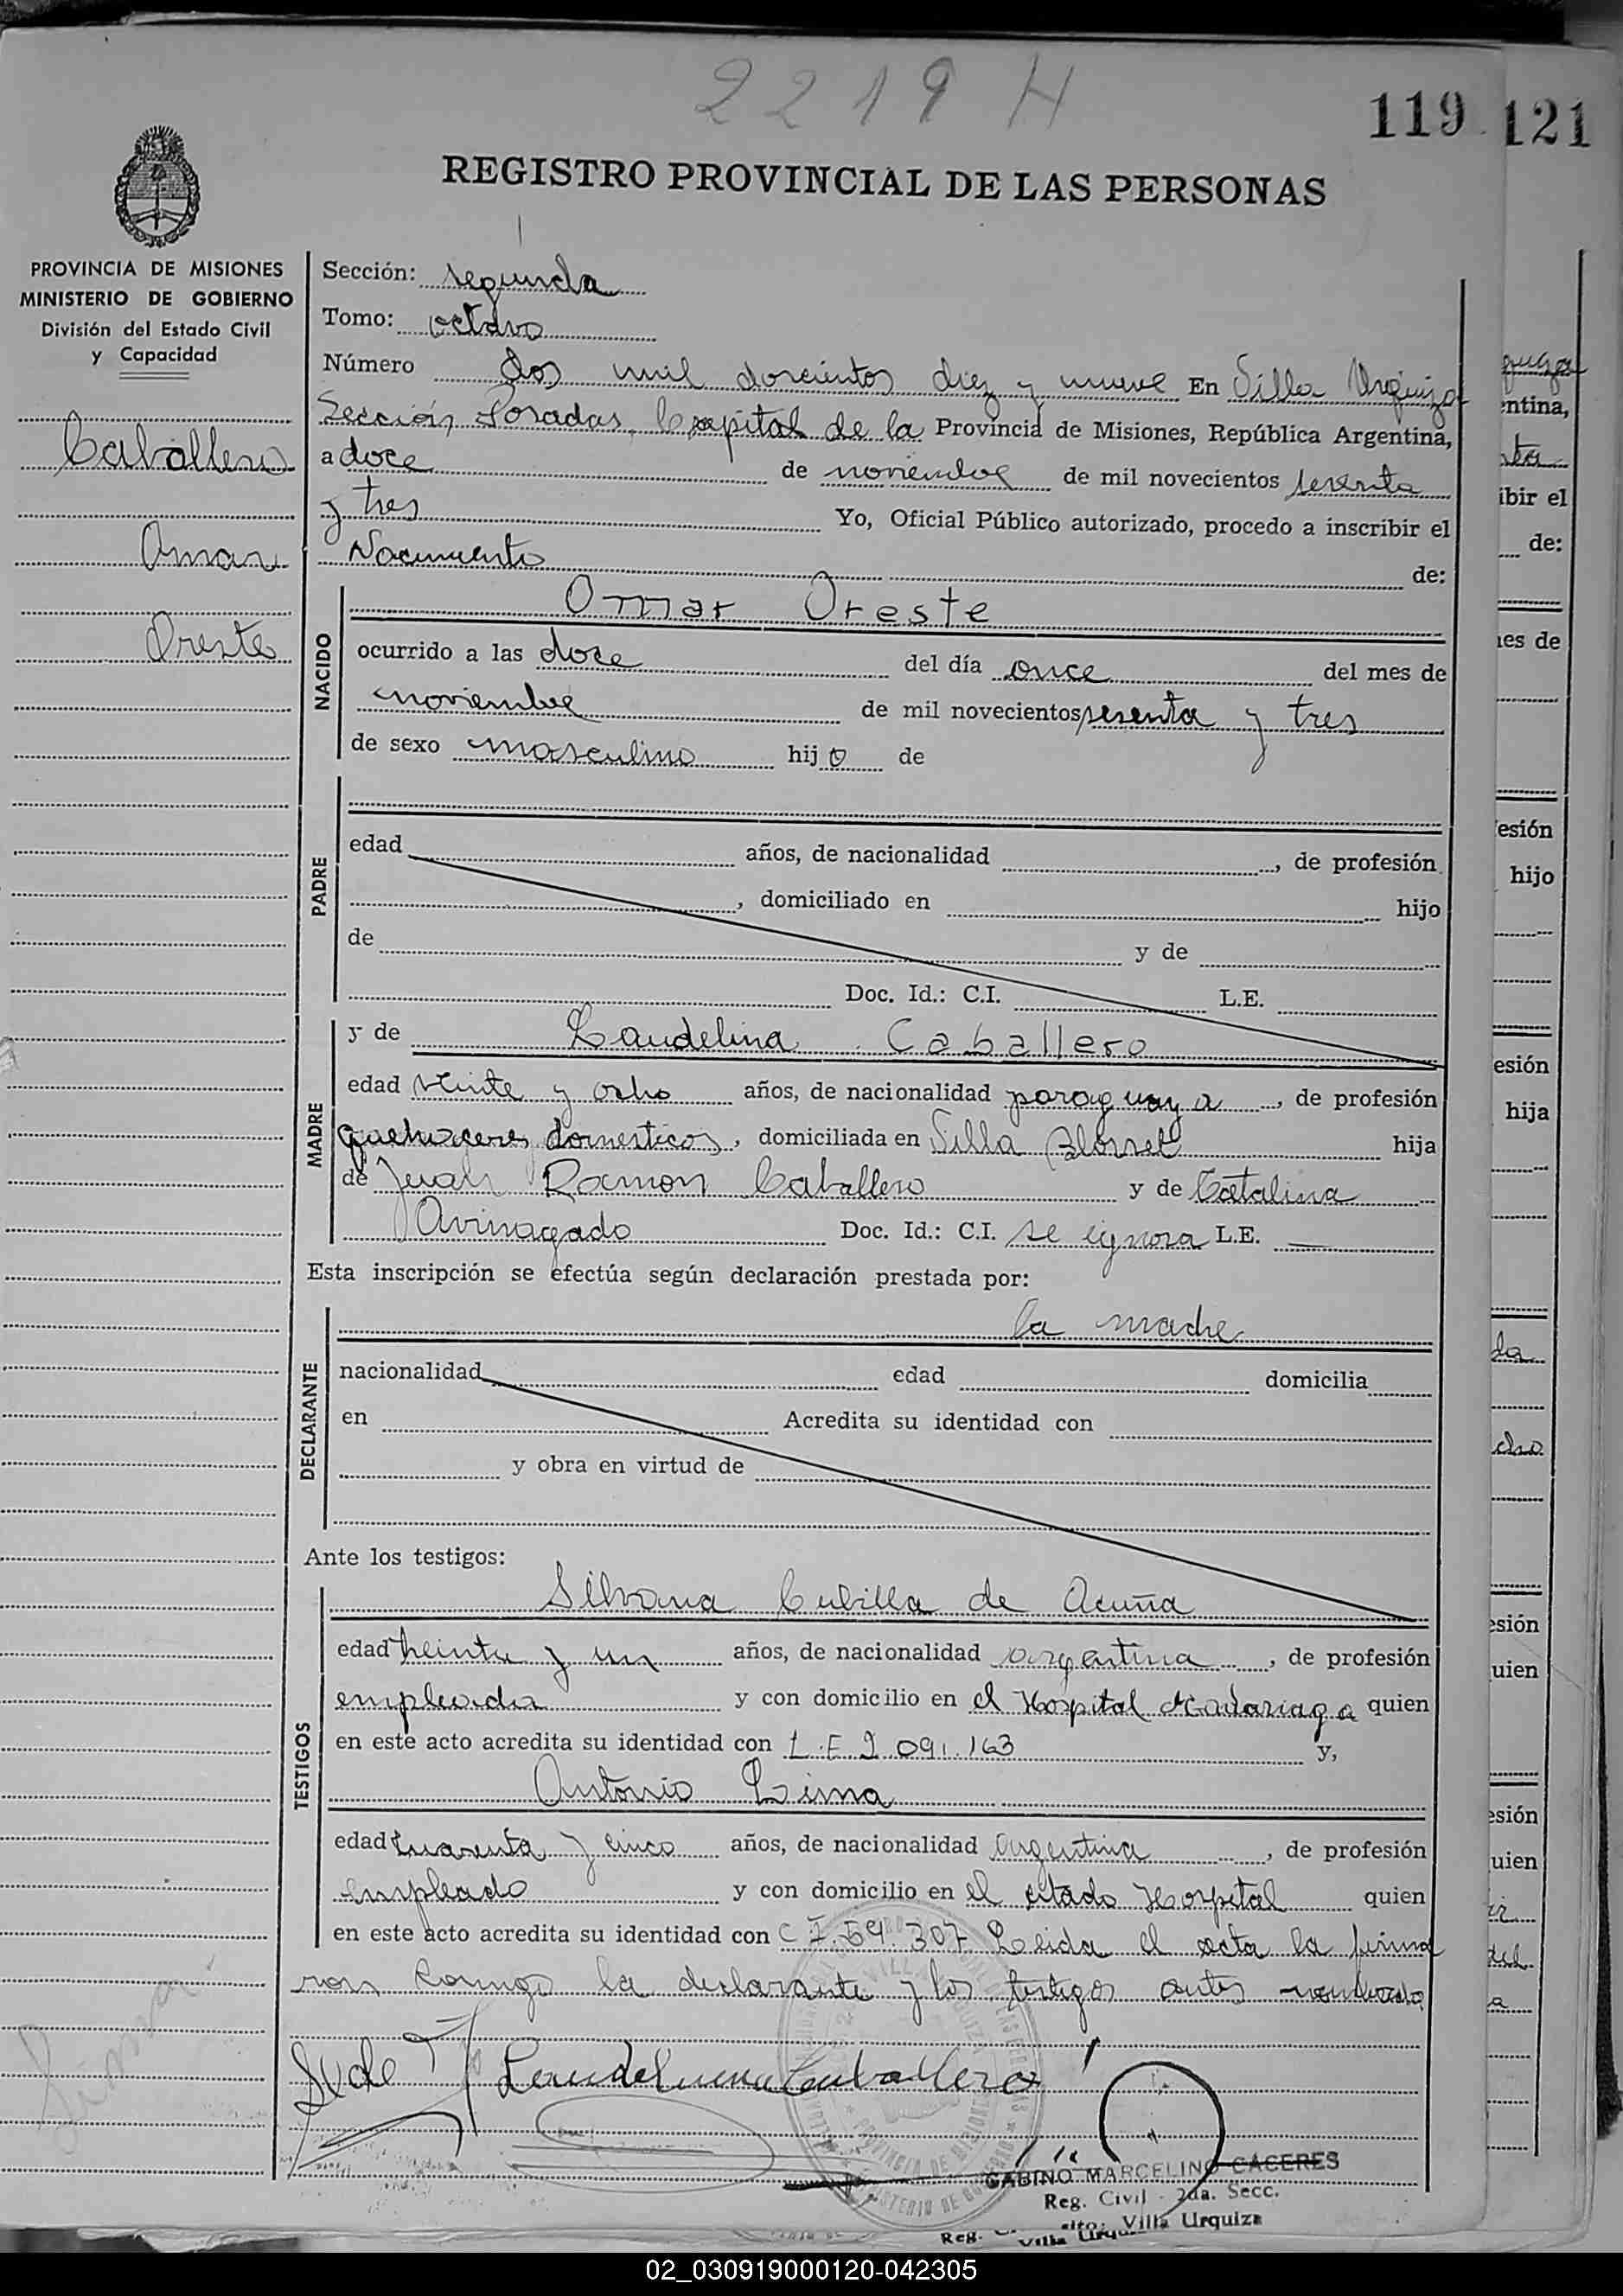 2219 H
119 121
REGISTRO PROVINCIAL DE LAS PERSONAS
PROVINCIA DE MISIONES
MINISTERIO DE GOBIERNO
División del Estado Civil
y Capacidad
Caballero
Omar
Oreste
Sección: segunda
Tomo: octavo
Número dos mil doscientos diez y nueve En Villa Urquiza
Sección Posadas, Capital de la Provincia de Misiones, República Argentina,
a doce de noviembre de mil novecientos sesenta
y tres Yo, Oficial Público autorizado, procedo a inscribir el
Nacimiento de:
NACIDO
Omar Oreste
ocurrido a las doce del día once del mes de
noviembre de mil novecientos sesenta y tres
de sexo masculino hijo de
PADRE
edad años, de nacionalidad , de profesión
, domiciliado en hijo
de y de
Doc. Id.: C.I. L.E.
MADRE
y de Laudelina Caballero
edad veinte y ocho años, de nacionalidad paraguaya , de profesión
quehaceres domesticos, domiciliada en Villa Blosset hija
de Juan Ramon Caballero y de Catalina
Avinagado Doc. Id.: C.I. se ignora L.E. —
Esta inscripción se efectúa según declaración prestada por:
la madre
DECLARANTE
nacionalidad edad domicilia
en Acredita su identidad con
y obra en virtud de
Ante los testigos:
TESTIGOS
Silvana Cubilla de Acuña
edad treinta y un años, de nacionalidad argentina , de profesión
empleada y con domicilio en el Hospital Madariaga quien
en este acto acredita su identidad con 091.163 y,
Antonio Lima
edad cuarenta y cinco años, de nacionalidad argentina , de profesión
empleado y con domicilio en el citado Hospital quien
en este acto acredita su identidad con C I. 54.307 Leida el acta la firma
ron conmigo la declarante y los testigos antes nombrado
Laudelina Caballero
GABINO MARCELINO CACERES
Reg. Civil - 2da. Secc.
Villa Urquiza
02_030919000120-042305